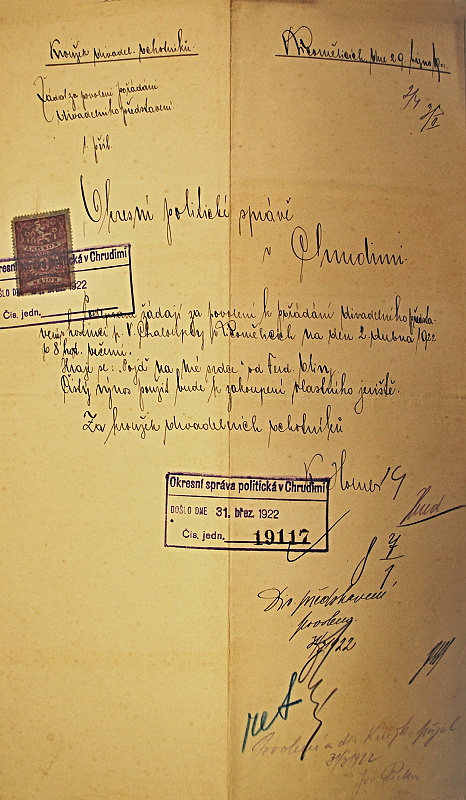 Kroužek divadel. ochotníků
dne 29. října
Žádost za povolení pořádání
divadelního představení
1 příl.
Okresní politické správě
v Chrudimi.
Okresní správa politická v Chrudimi
DOŠLO DNE 1922
Čís. jedn.
žádají za povolení k pořádání divadelního předsta-
v hostinci p. V. Chaloupky v na den 2. dubna 1922
o 8 hod. večerní.
Hraje se: „Pojď na mé srdce" od Ferd. Oliv
Čistý výnos použit bude k zakoupení vlastního jeviště.
Za kroužek divadelních ochotníků
Okresní správa politická v Chrudimi
DOŠLO DNE 31. břez. 1922
Čís. jedn. 19117
Div. představení
povoleno
1922
ret
Povolení
31/3 1922